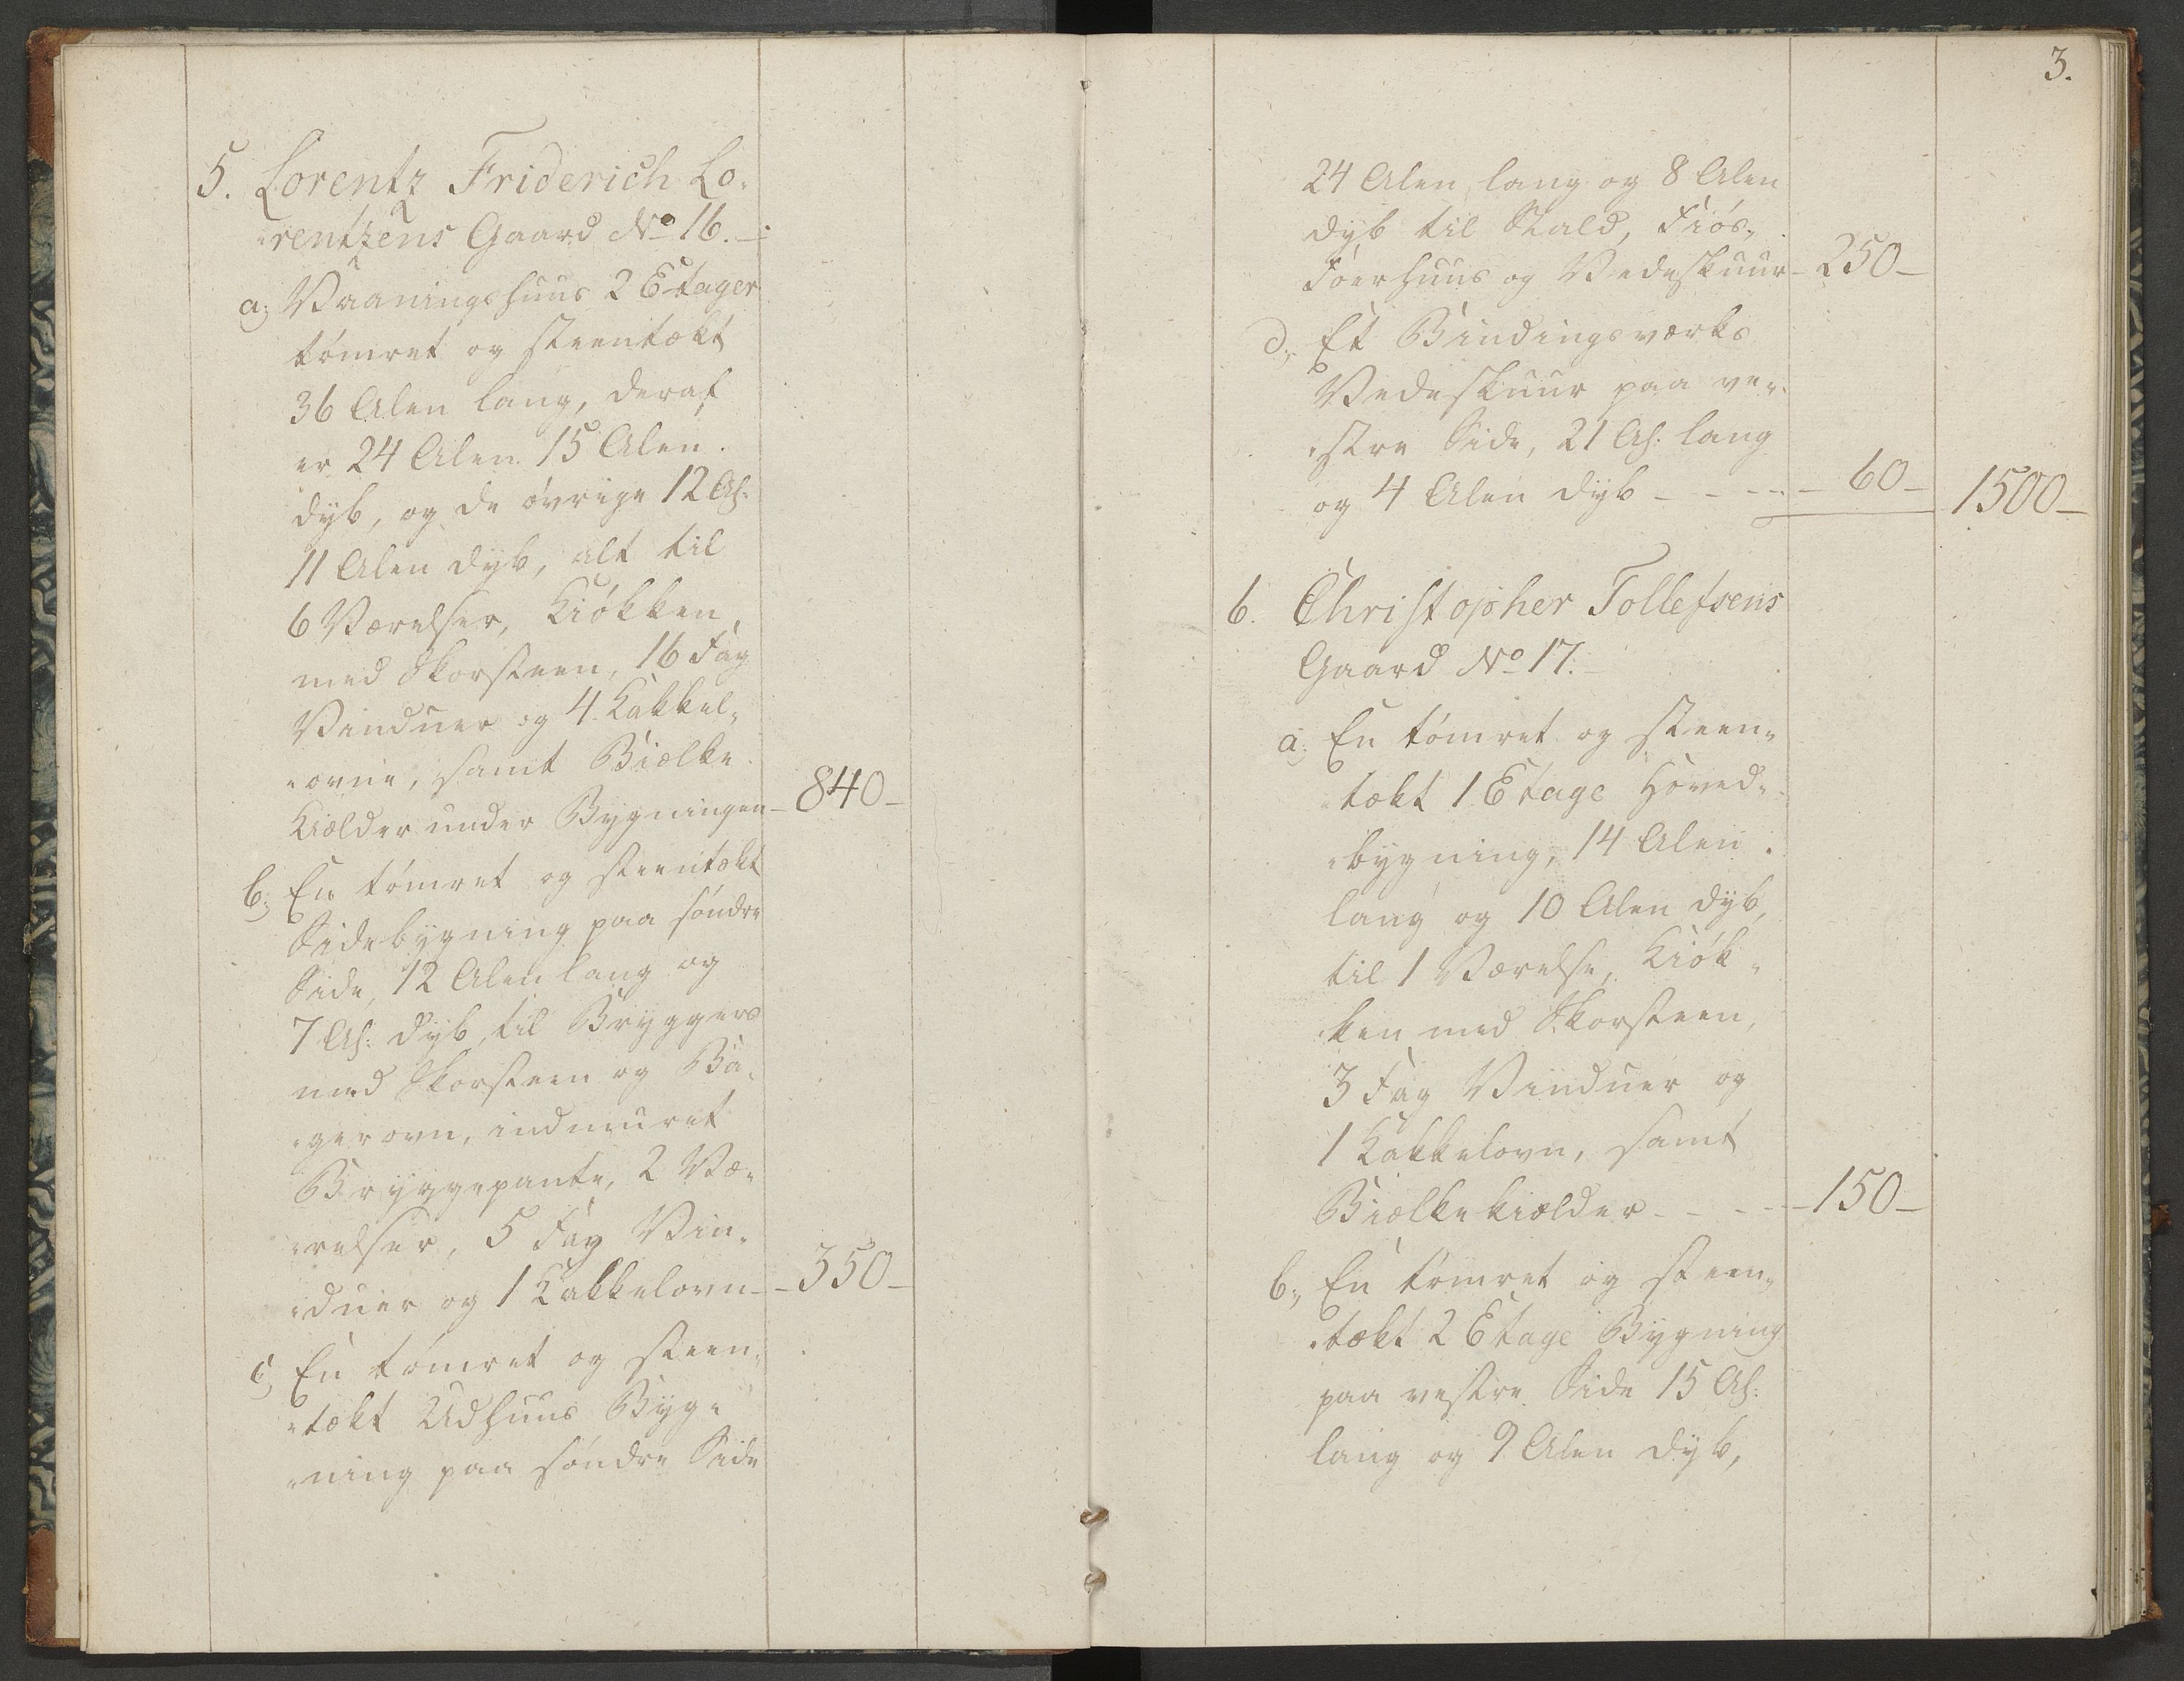 5. Lorentz Friderich Lo-
rentzens Gaard No 16.
a; Vaaningshuus 2 Etager
tømret og steentækt
36 Alen lang, deraf
er 24 Alen 15 Alen
dyb, og de øvrige 12 Al:
11 Alen dyb, alt til
6 Værelser, Kiøkken,
med Skorsteen, 16 Fag
Vinduer og 4 Kakkel-
ovne, samt Bielke
Kielder under Bygningen - 840 -
b; En tømret og steentækt
Sidebygning paa søndre
Side, 12 Alen lang og
7 Al: dyb, til Bryggers
med Skorsteen og Ba-
gerovn, indmuret
Bryggepante, 2 Væ-
relser, 5 Fag Vin-
duer og 1 Kakkelovn - - 350 -
c; En tømret og steen-
tækt Udhuus Byg-
ning paa søndre Side
3.
24 Alen lang og 8 Alen
dyb til Stald, Fiøs,
Foerhuus og Vedeskuur - 250 -
d; Et Bindingsværks
Vedeskuur paa ve-
stre Side, 21 Al: lang
og 4 Alen dyb - - - - - 60 - 1500 -
6. Christopher Tollefsens
Gaard No 17.
a; En tømret og steen-
tækt 1 Etage Hoved-
bygning, 14 Alen
lang og 10 Alen dyb,
til 1 Værelse, Kiøk-
ken med Skorsteen,
3 Fag Vinduer og
1 Kakkelovn, samt
Bielkekielder - - - - 150 -
b; En tømret og steen-
tækt 2 Etage Bygning
paa vestre Side 15 Al:
lang og 9 Alen dyb,